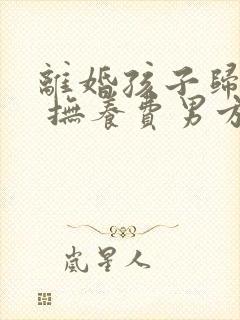 離婚孩子歸
撫養費男方
嵐星人